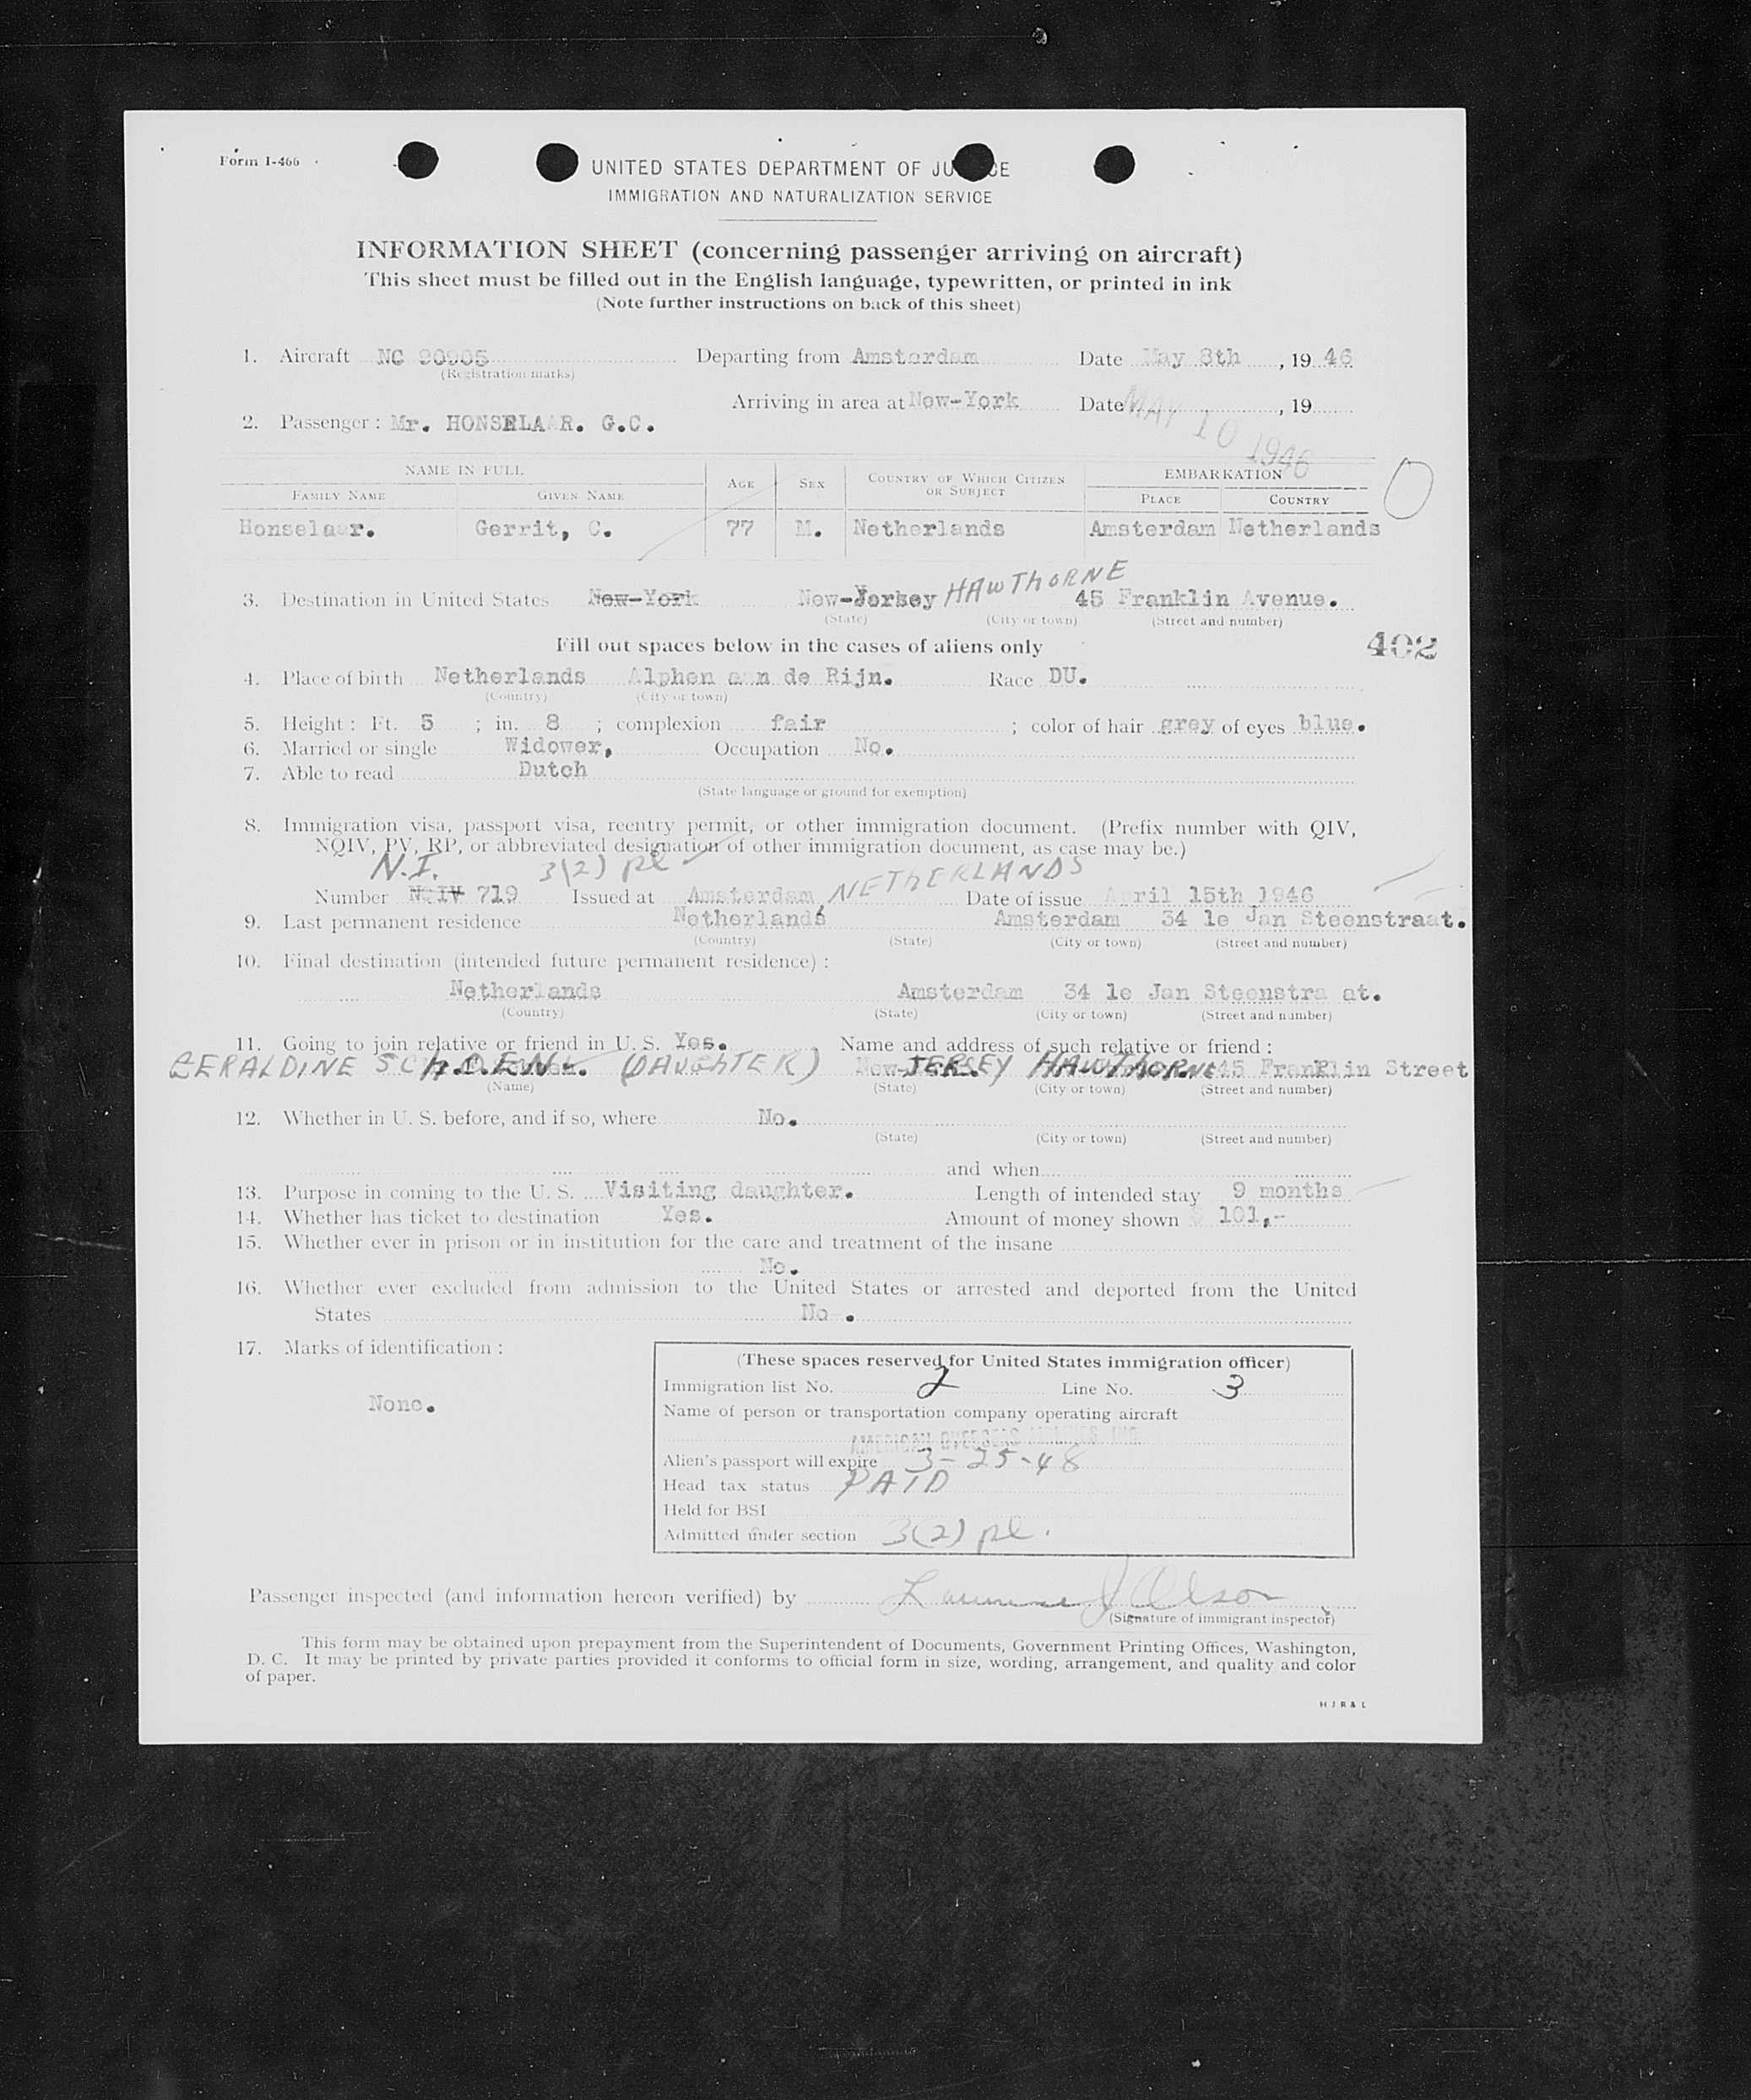 Form I-466
UNITED STATES DEPARTMENT OF JU CE
IMMIGRATION AND NATURALIZATION SERVICE
INFORMATION SHEET (concerning passenger arriving on aircraft)
This sheet must be filled out in the English language, typewritten, or printed in ink
(Note further instructions on back of this sheet)
1. Aircraft NC 90905 Departing from Amsterdam Date May 8th, 19 46
(Registration marks)
Arriving in area at New-York Date MAY 10 1946, 19
2. Passenger: Mr. HONSELAAR. G.C.
NAME IN FULL AGE SEX COUNTRY OF WHICH CITIZEN OR SUBJECT EMBARKATION
FAMILY NAME GIVEN NAME PLACE COUNTRY
Honselaar. Gerrit, C. 77 M. Netherlands Amsterdam Netherlands
3. Destination in United States New-York New-Jersey HAWTHORNE 45 Franklin Avenue.
(State) (City or town) (Street and number)
Fill out spaces below in the cases of aliens only
402
4. Place of birth Netherlands Alphen aan de Rijn. Race DU.
(Country) (City or town)
5. Height: Ft. 5 ; in. 8 ; complexion fair ; color of hair grey of eyes blue.
6. Married or single Widower, Occupation No.
7. Able to read Dutch
(State language or ground for exemption)
8. Immigration visa, passport visa, reentry permit, or other immigration document. (Prefix number with QIV,
NQIV, PV, RP, or abbreviated designation of other immigration document, as case may be.)
N.I. 3(2) pl
Number NQIV 719 Issued at Amsterdam, NETHERLANDS Date of issue April 15th 1946
9. Last permanent residence Netherlands Amsterdam 34 1e Jan Steenstraat.
(Country) (State) (City or town) (Street and number)
10. Final destination (intended future permanent residence):
Netherlands Amsterdam 34 1e Jan Steenstra at.
(Country) (State) (City or town) (Street and number)
11. Going to join relative or friend in U. S. Yes. Name and address of such relative or friend:
GERALDINE SCHOEN. (DAUGHTER) New-JERSEY HAWTHORNE 45 Franklin Street
(Name) (State) (City or town) (Street and number)
12. Whether in U. S. before, and if so, where No.
(State) (City or town) (Street and number)
and when
13. Purpose in coming to the U. S. Visiting daughter. Length of intended stay 9 months
14. Whether has ticket to destination Yes. Amount of money shown $ 101,-
15. Whether ever in prison or in institution for the care and treatment of the insane
No.
16. Whether ever excluded from admission to the United States or arrested and deported from the United
States No.
17. Marks of identification:
None.
(These spaces reserved for United States immigration officer)
Immigration list No. 2 Line No. 3
Name of person or transportation company operating aircraft
AMERICAN OVERSEAS AIRLINES, INC.
Alien's passport will expire 3-25-48
Head tax status PAID
Held for BSI
Admitted under section 3(2) pl.
Passenger inspected (and information hereon verified) by Lawrence J Olson
(Signature of immigrant inspector)
This form may be obtained upon prepayment from the Superintendent of Documents, Government Printing Offices, Washington,
D. C. It may be printed by private parties provided it conforms to official form in size, wording, arrangement, and quality and color
of paper.
H J R & L